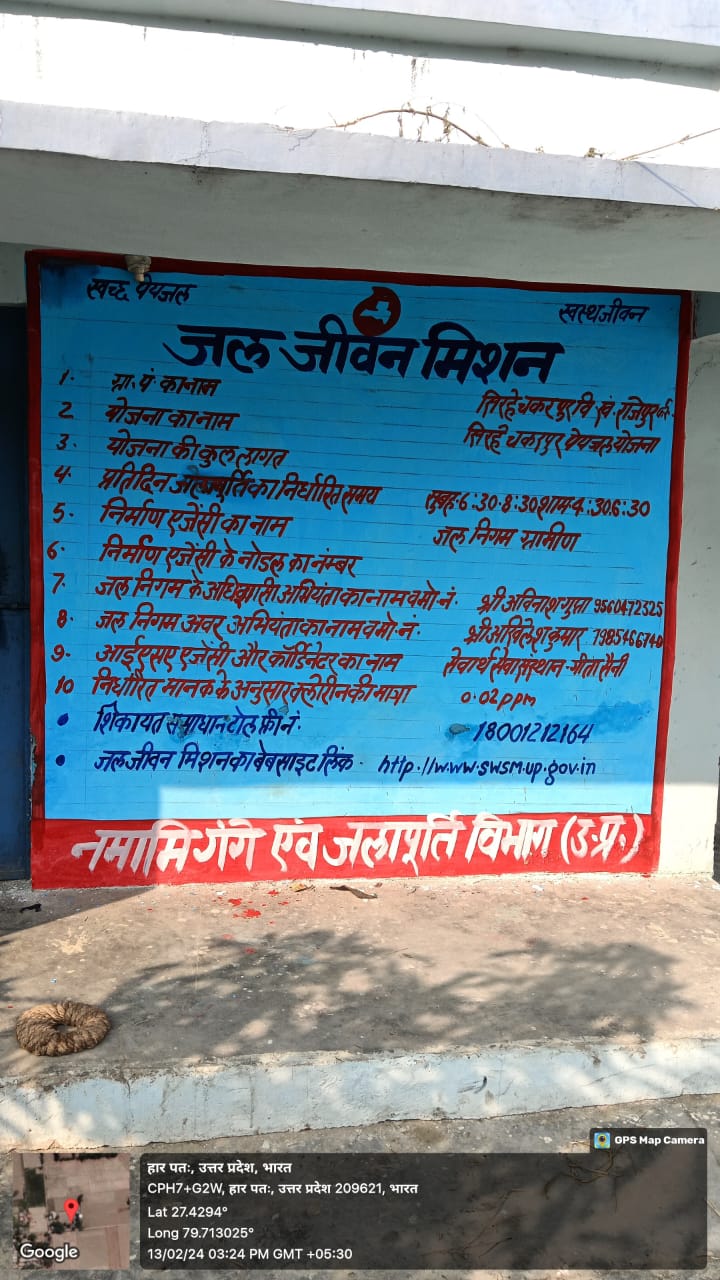 स्वच्छ पेयजल
स्वस्थ जीवन
जल जीवन मिशन
1. ग्रा.पं. का नाम सिरहे चकरपुर वि.खं. राजेपुर
2 योजना का नाम सिरहे चकरपुर पेयजल योजना
3. योजना की कुल लागत
4. प्रतिदिन जलापूर्ति का निर्धारित समय सुबह-6:30-8:30 शाम-4:30.6:30
5. निर्माण एजेंसी का नाम जल निगम ग्रामीण
6. निर्माण एजेंसी के नोडल का नंम्बर
7. जल निगम के अधिशासी अभियंता का नाम व मो.नं. श्री अविनाश गुप्ता 9560472325
8. जल निगम अवर अभियंता का नाम व मो.नं. श्री अखिलेश कुमार 7985466740
9. आईएसए एजेंसी और कॉर्डिनेटर का नाम सेवार्थ सेवा संस्थान-गीता सैनी
10 निर्धारित मानक के अनुसार क्लोरीन की मात्रा 0.02 ppm
• शिकायत समाधान टोल फ्री नं. 18001212164
• जल जीवन मिशन का बेबसाइट लिंक http://www.swsm.up.gov.in
नमामि गंगे एंव जलापूर्ति विभाग (उ.प्र.)
GPS Map Camera
हार पतः, उत्तर प्रदेश, भारत
CPH7+G2W, हार पतः, उत्तर प्रदेश 209621, भारत
Lat 27.4294°
Long 79.713025°
13/02/24 03:24 PM GMT +05:30
Google